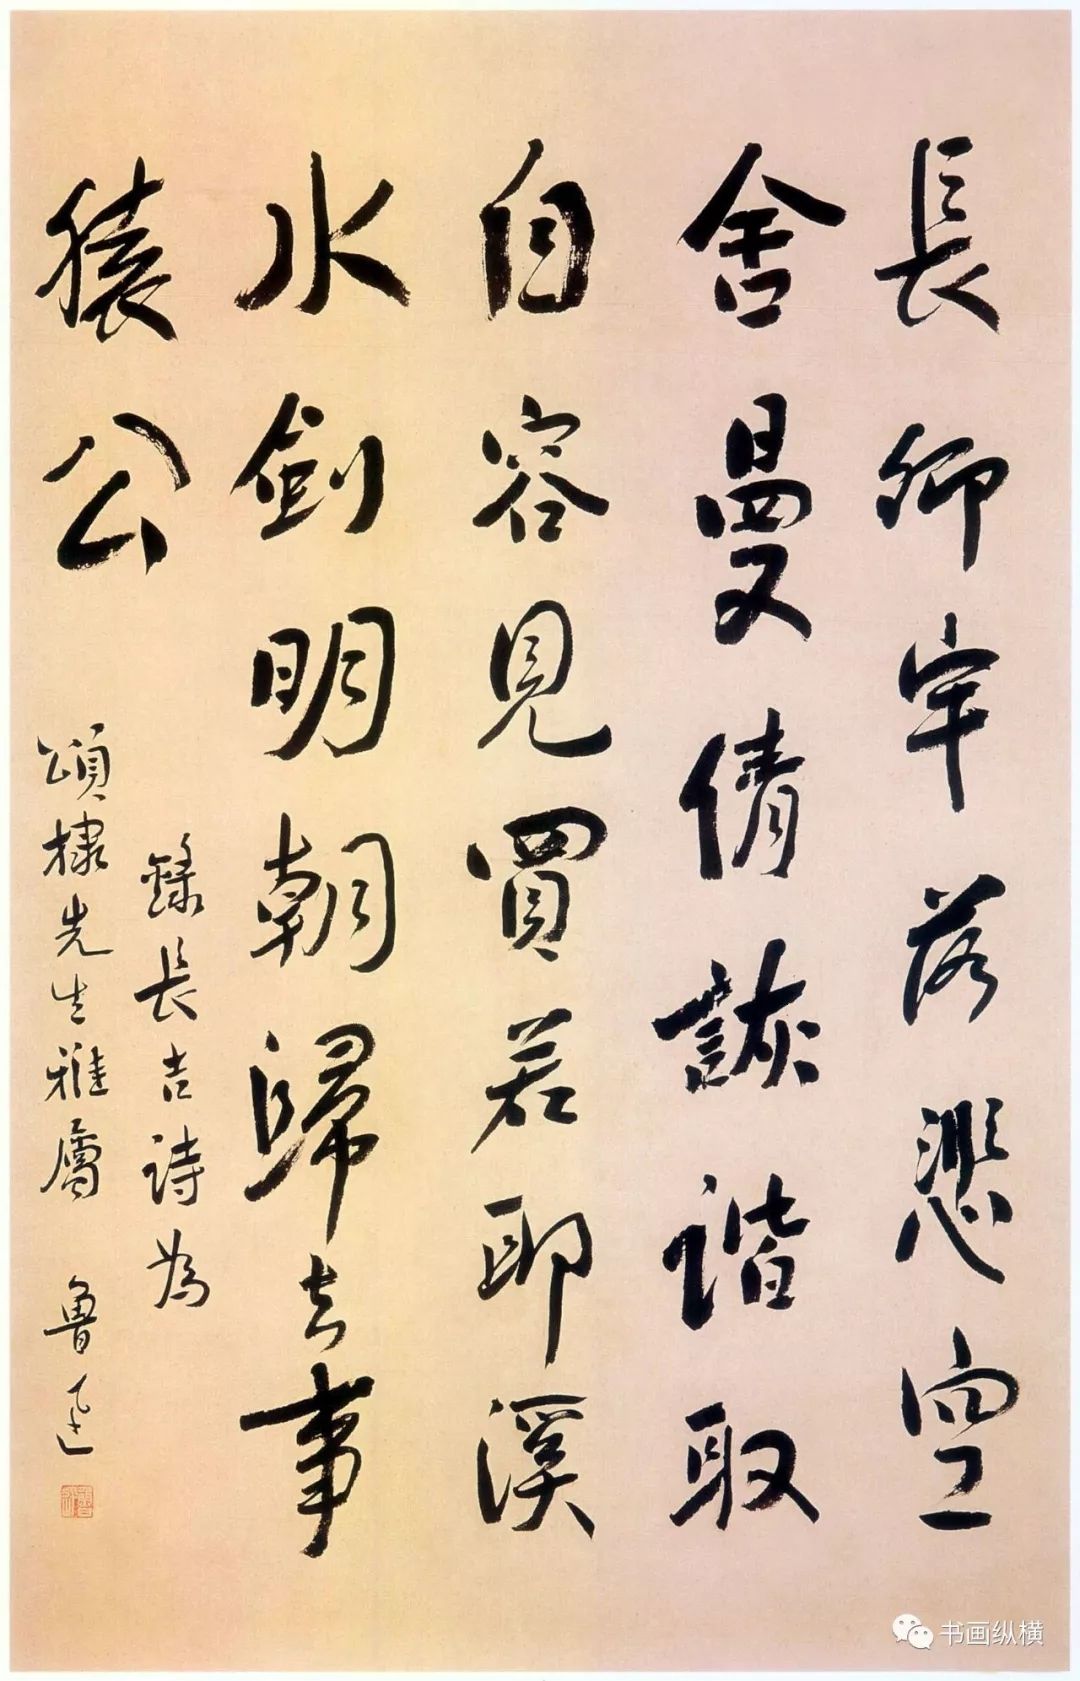 長卿牢落悲空
舍曼倩詼諧取
自容見買若耶溪
水劍明朝歸去事
猿公
錄長吉詩為
頌棣先生雅屬 魯迅
书画纵横